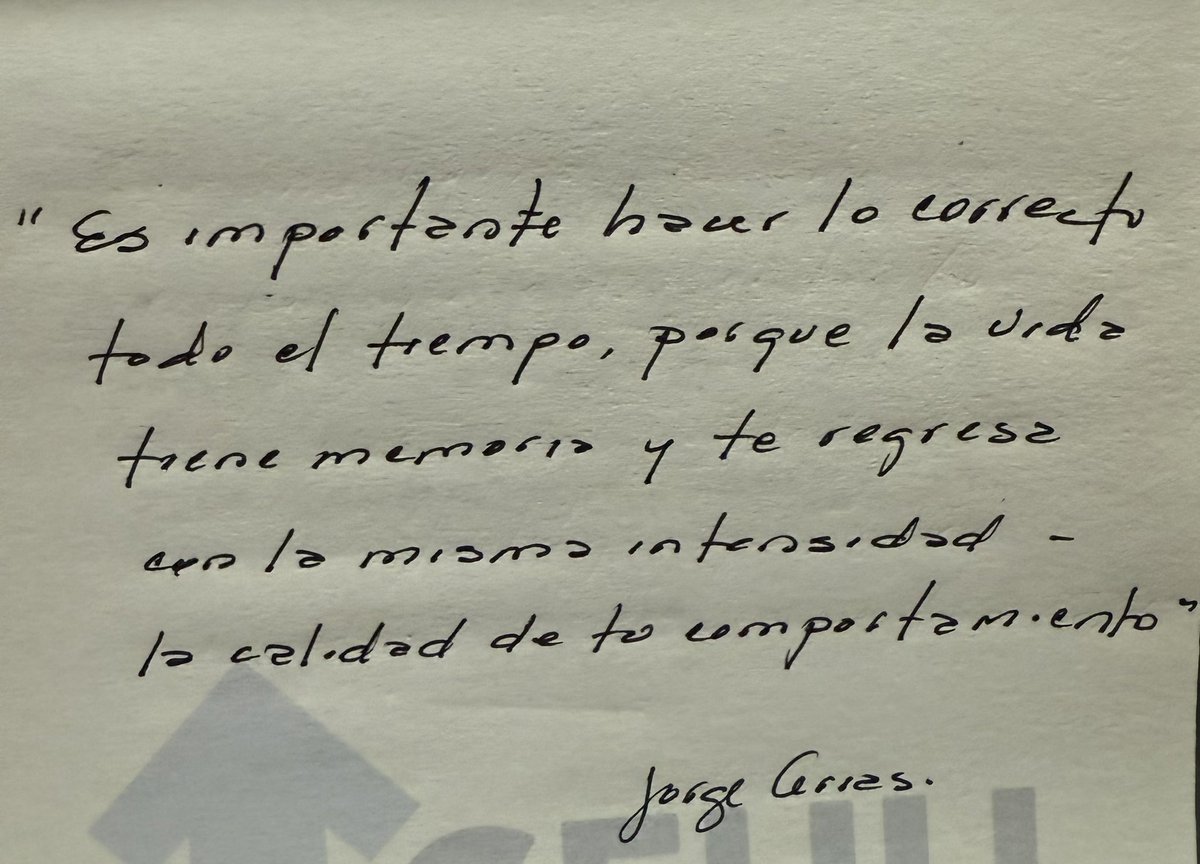 "Es importante hacer lo correcto
todo el tiempo, porque la vida
tiene memoria y te regresa
con la misma intensidad -
la calidad de tu comportamiento"
Jorge